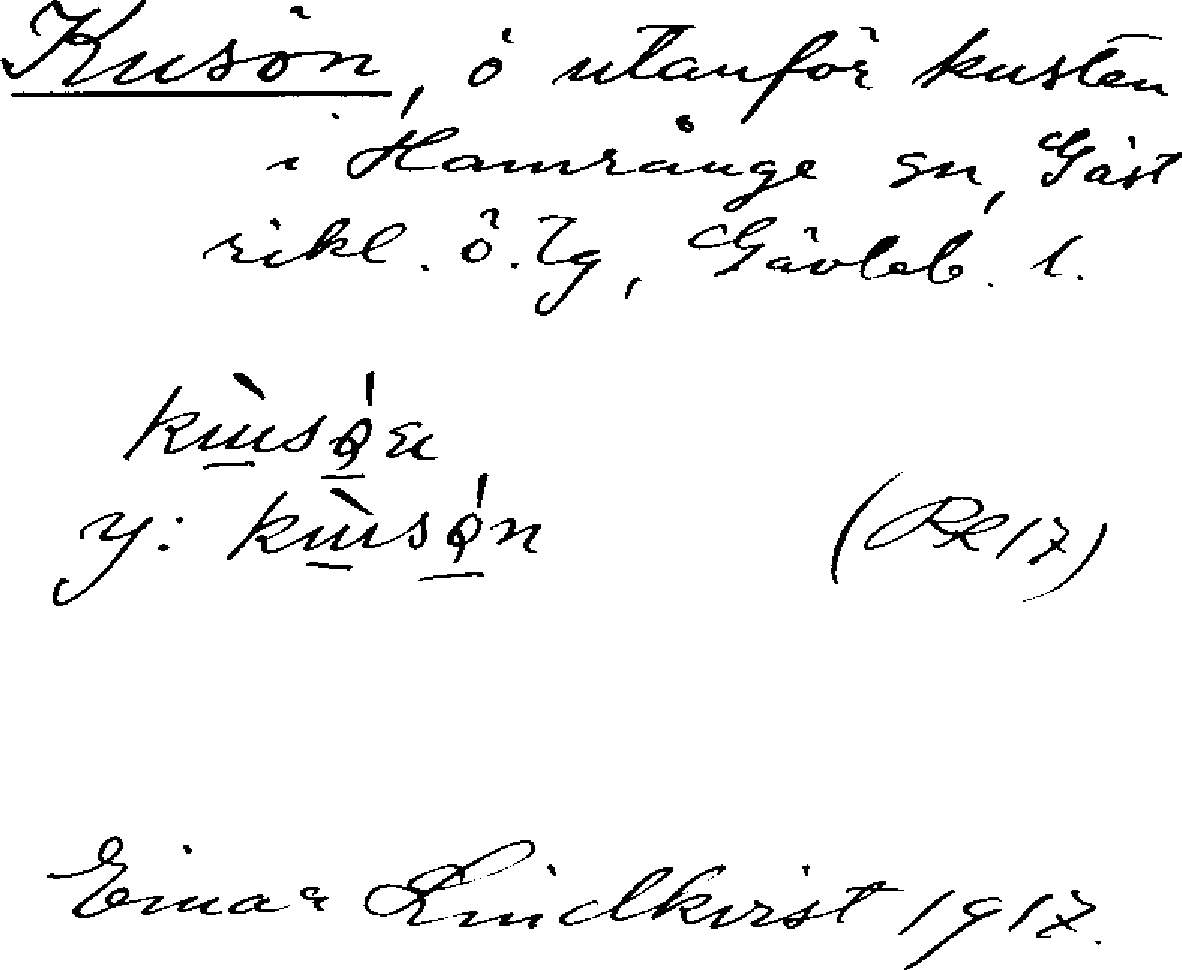 Kusön, ö utanför kusten
i Hamrånge sn, Gäst
rikl. ö. tg, Gävleb. l.
kɯ̀sǫ́n
y: kɯ̀sǫ́n
(Rk 17)
Einar Lindkvist 1917.